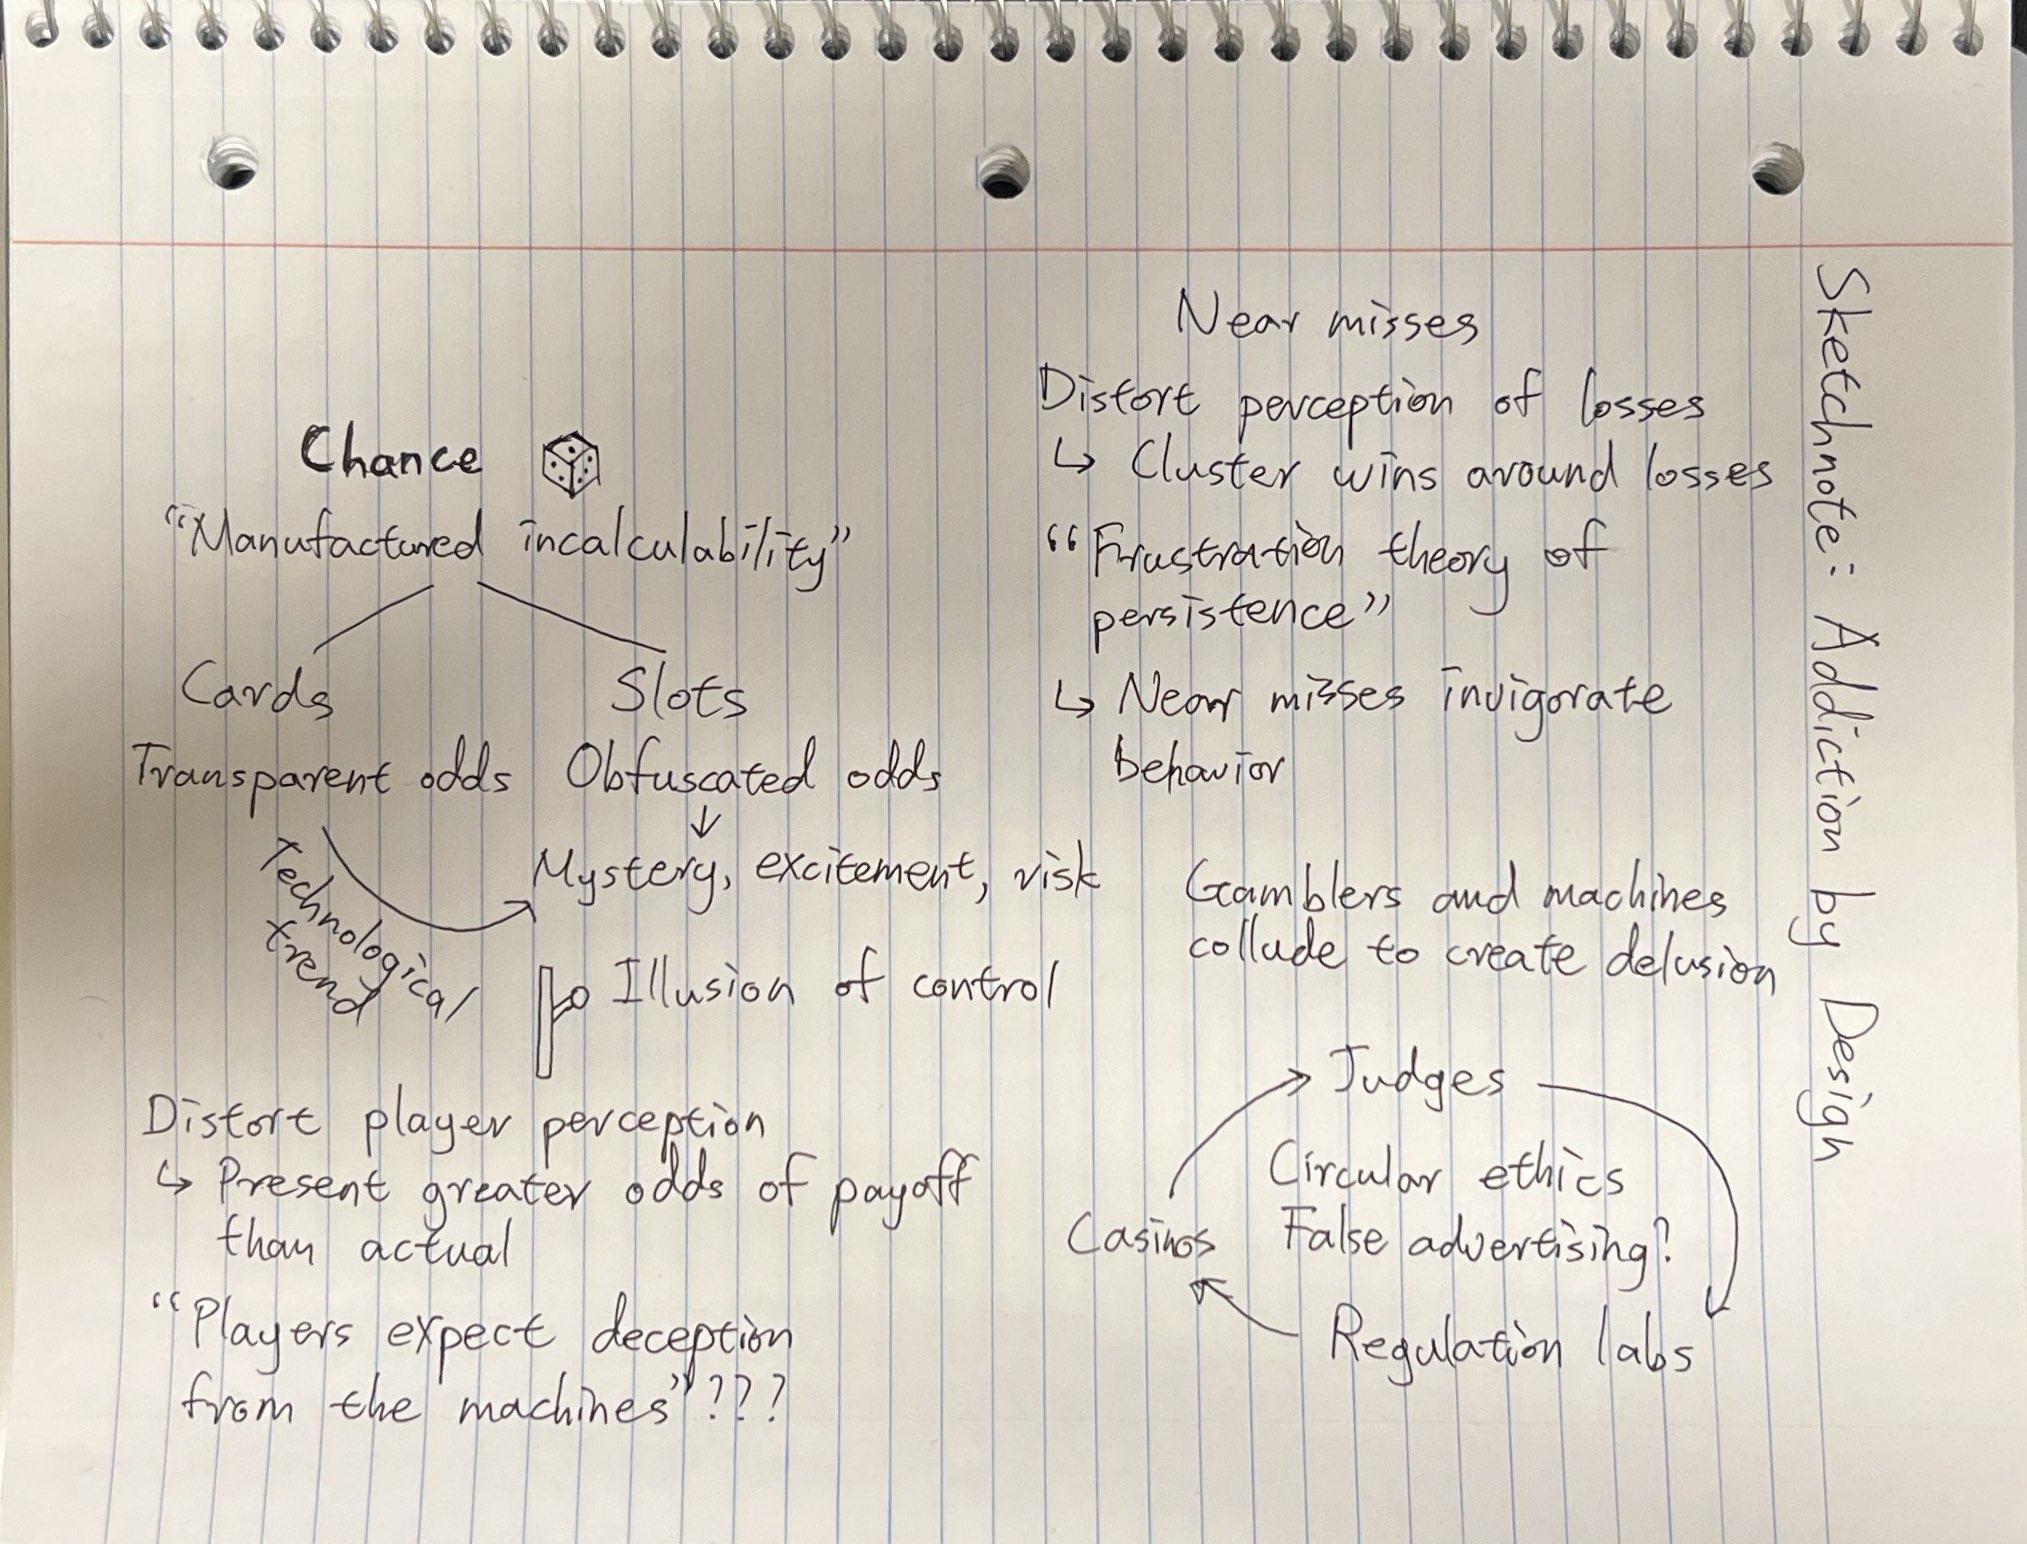 Sketchnote: Addiction by Design
Chance
"Manufactured incalculability"
Cards
Slots
Transparent odds
Obfuscated odds
Technological
trend
Mystery, excitement, risk
Illusion of control
Distort player perception
↳ Present greater odds of payoff
than actual
"Players expect deception
from the machines"???
Near misses
Distort perception of losses
↳ Cluster wins around losses
"Frustration theory of
persistence"
↳ Near misses invigorate
behavior
Gamblers and machines
collude to create delusion
Judges
Circular ethics
Casinos
False advertising?
Regulation labs